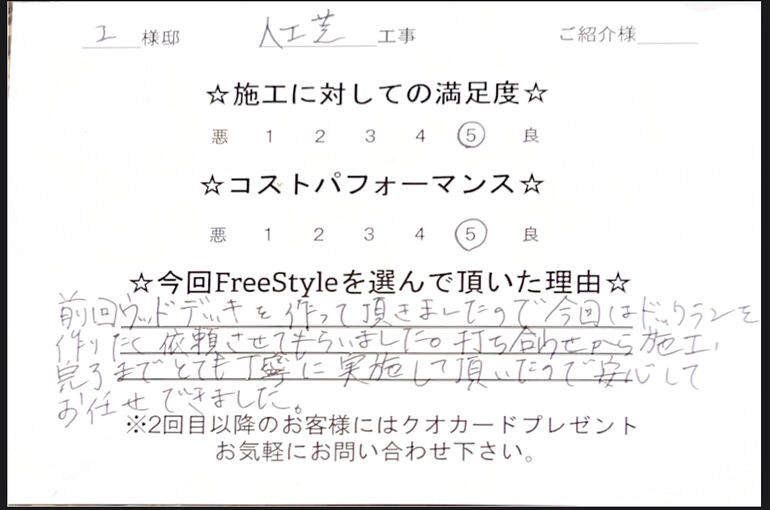 工 様邸 人工芝 工事 ご紹介様
☆施工に対しての満足度☆
悪 1 2 3 4 5 良
☆コストパフォーマンス☆
悪 1 2 3 4 5 良
☆今回FreeStyleを選んで頂いた理由☆
前回ウッドデッキを作って頂きましたので今回はドックランを
作りたく依頼させてもらいました。打ち合わせから施工、
完了までとても丁寧に実施して頂いたので安心して
お任せできました。
※2回目以降のお客様にはクオカードプレゼント
お気軽にお問い合わせ下さい。